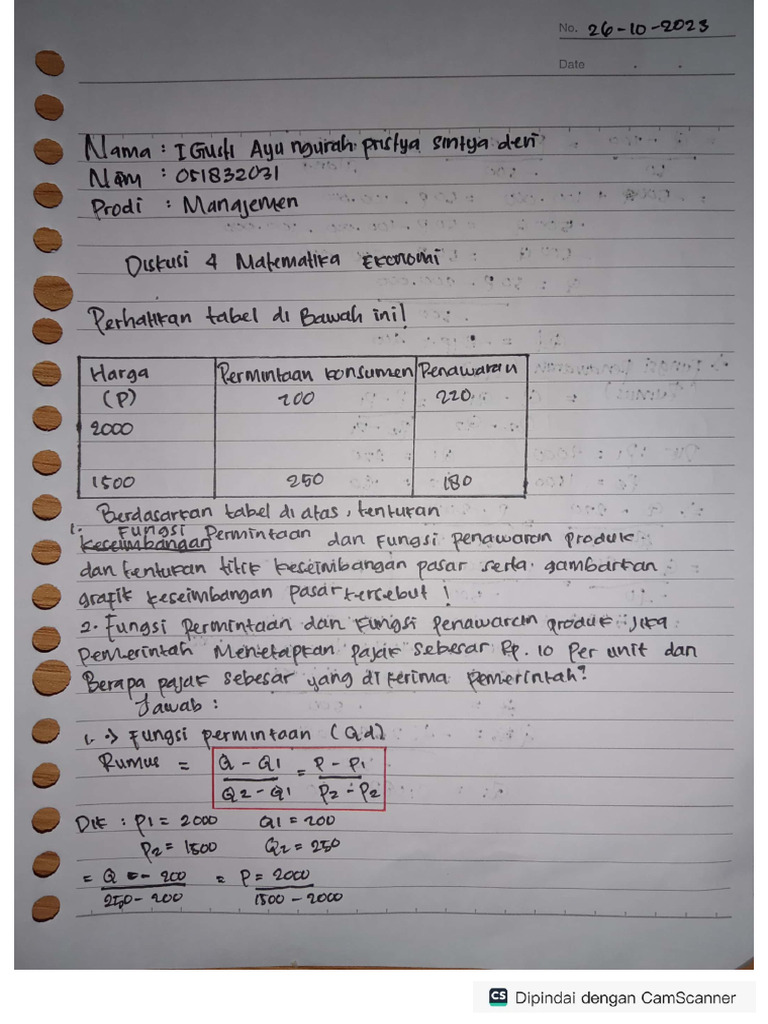 No. 26-10-2023
Date . .
Nama : I Gusti Ayu ngurah pristya sintya dewi
Nim : 051832031
Prodi : Manajemen
Diskusi 4 Matematika Ekonomi
Perhatikan tabel di Bawah ini!
Harga Permintaan konsumen Penawaran
(P) 200 220
2000
1500 250 180
Berdasarkan tabel di atas, tentukan
1. Fungsi Permintaan dan Fungsi penawaran produk
keseimbangan
dan tentukan titik keseimbangan pasar serta gambarkan
grafik keseimbangan pasar tersebut!
2. Fungsi Permintaan dan Fungsi penawaran produk jika
pemerintah Menetapkan pajak sebesar Rp. 10 Per unit dan
Berapa pajak sebesar yang diterima pemerintah?
Jawab :
1. -> Fungsi permintaan (Qd)
Rumus = Q - Q1 / Q2 - Q1 = P - P1 / P2 - P2
Dik : P1 = 2000 Q1 = 200
P2 = 1500 Q2 = 250
= Q - 200 / 250 - 200 = P = 2000 / 1500 - 2000
CS Dipindai dengan CamScanner